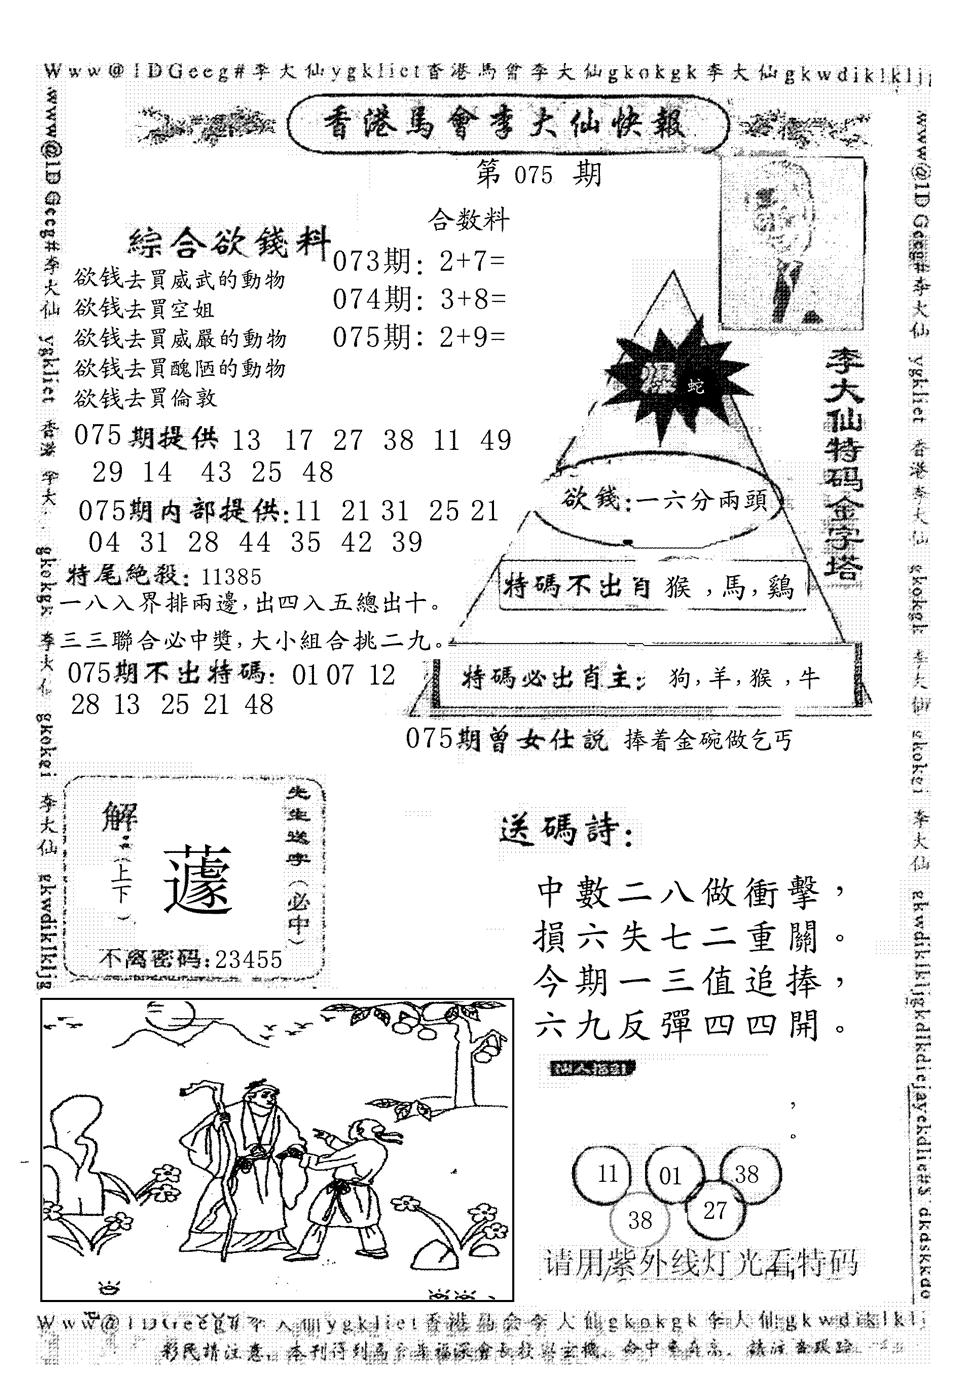 Www@1DGeeg#李大仙ygkliet香港馬會李大仙gkokgk李大仙gkwdiklklj
香港馬會李大仙快報
第 075 期
合数料
綜合欲錢料
073期: 2+7=
欲钱去買威武的動物
074期: 3+8=
欲钱去買空姐
075期: 2+9=
欲钱去買威嚴的動物
欲钱去買醜陋的動物
欲钱去買倫敦
蛇
李大仙特码金字塔
075期提供 13 17 27 38 11 49
29 14 43 25 48
欲錢:一六分兩頭
075期内部提供:11 21 31 25 21
04 31 28 44 35 42 39
特尾絶殺: 11385
特碼不出肖 猴,馬,鷄
一八入界排兩邊,出四入五總出十。
三三聯合必中獎,大小組合挑二九。
075期不出特碼: 01 07 12
28 13 25 21 48
特碼必出肖主: 狗,羊,猴,牛
075期曾女仕説 捧着金碗做乞丐
先生送字(必中)
解
(上下)
蘧
不离密码:23455
送碼詩:
中數二八做衝擊,
損六失七二重關。
今期一三值追捧,
六九反彈四四開。
仙人指引
,
。
11 01 38
38 27
请用紫外线灯光看特码
www@1DGeeg#李大仙 ygkliet 香港
gkokgk 李大仙 gkokgi 李大仙 gkwdiklkljg
www@1DGeeg#李大仙 ygkliet 香港李大仙 gkokgk 李大仙 gkokgi 李大仙
Www@1DGeeg#李大仙ygkliet香港馬会李大仙gkokgk李大仙gkwdiklklj
彩民請注意,本刊得到馬